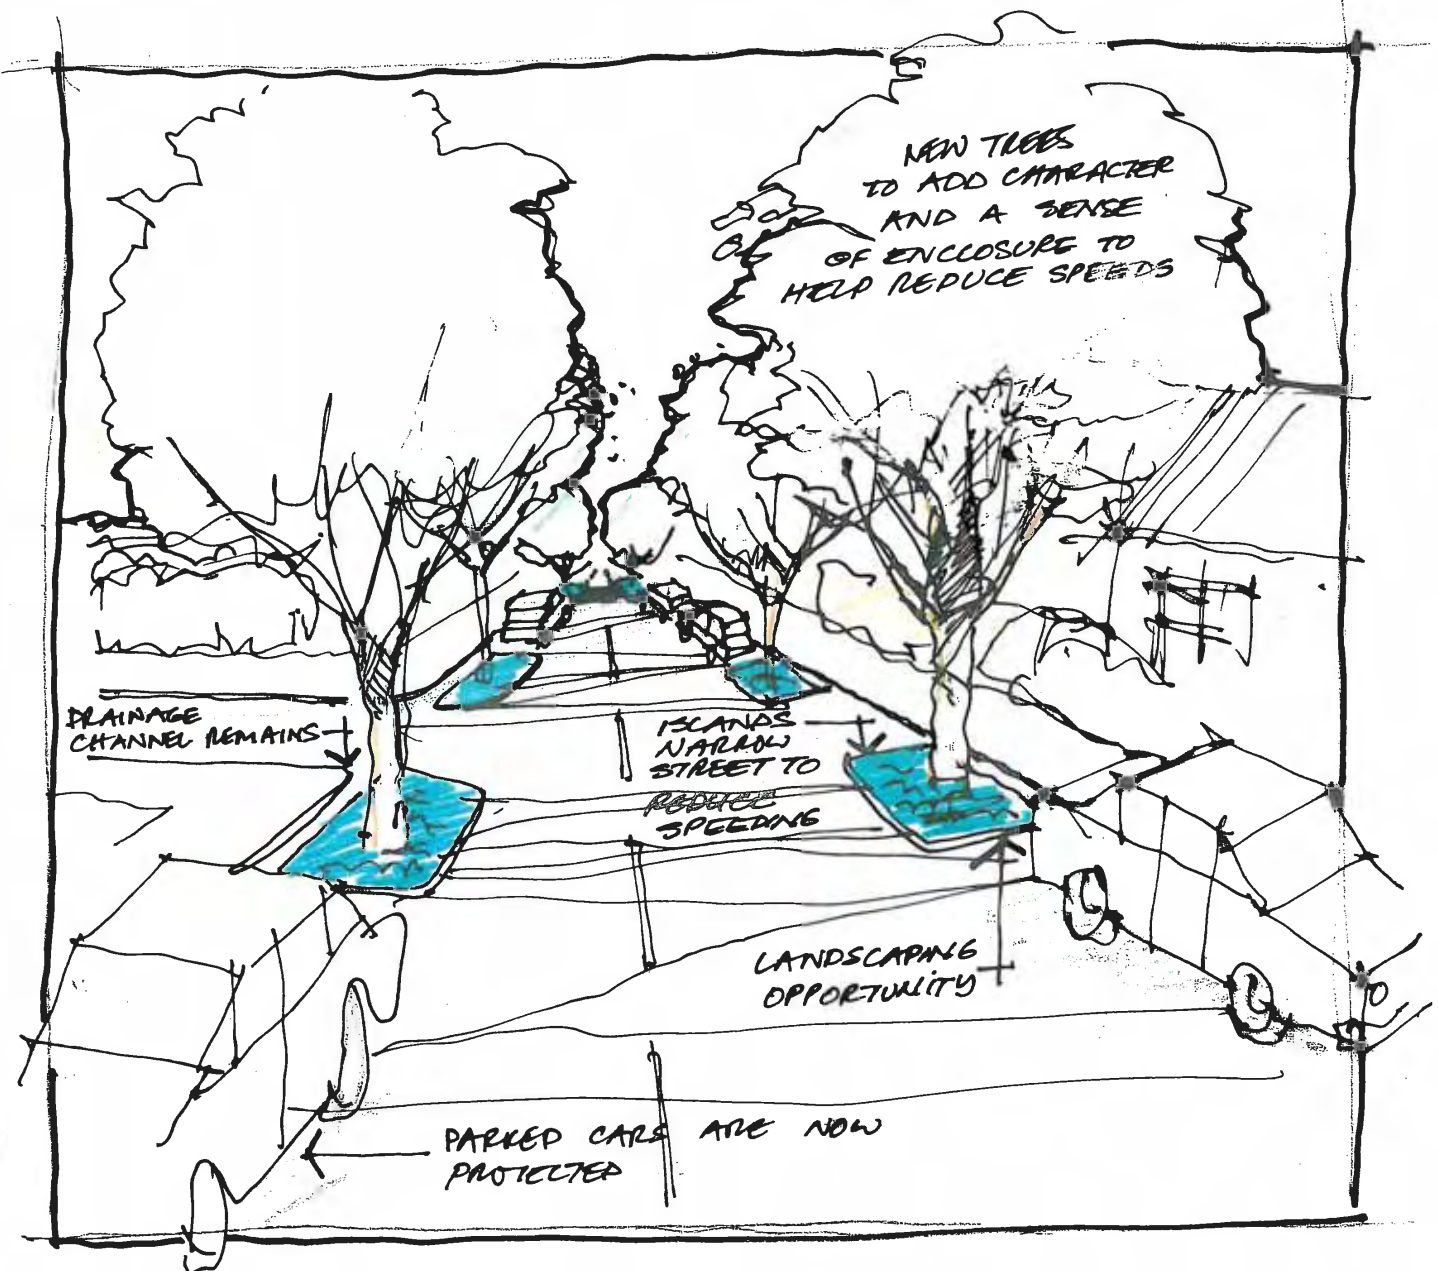 NEW TREES
TO ADD CHARACTER
AND A SENSE
OF ENCLOSURE TO
HELP REDUCE SPEEDS
DRAINAGE
CHANNEL REMAINS
ISLANDS
NARROW
STREET TO
REDUCE
SPEEDING
LANDSCAPING
OPPORTUNITY
PARKED CARS ARE NOW
PROTECTED